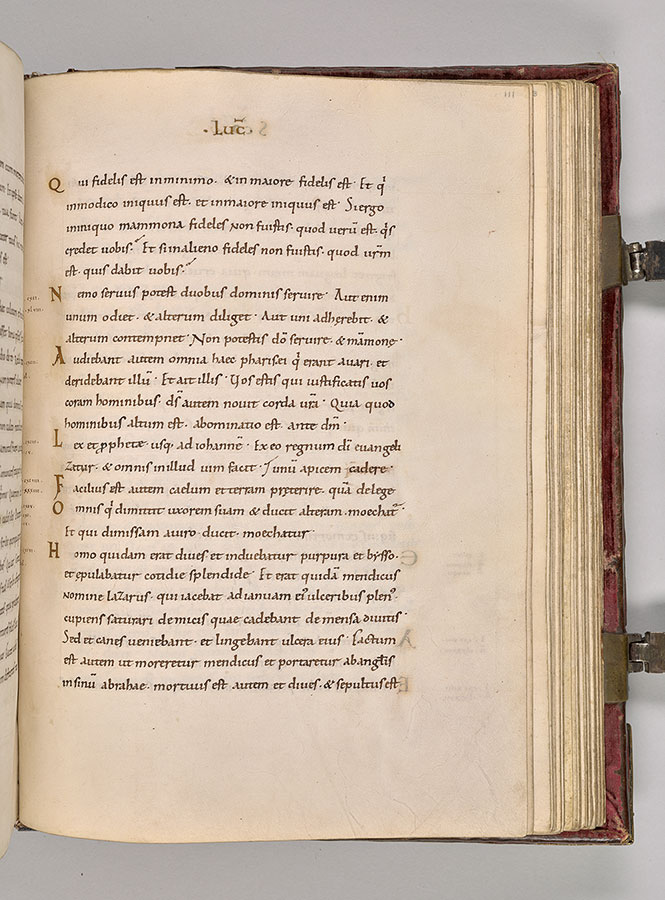 · Luc̄ ·
Qui fidelis est inminimo · & inmaiore fidelis est · Et q̇
inmodico iniquus est · et inmaiore iniquus est · Siergo
iniquo mammona fideles non fuistis · quod verū est · q̇s
credet vobis · Et sinalieno fideles non fuistis · quod vrm̄
est · quis dabit vobis ·
Nemo servus potest duobus dominis servire · Aut enim
unum odiet · & alterum diliget · Aut uni adherebit · &
alterum contempnet · Non potestis dō servire · & māmone ·
Audiebant autem omnia haec pharisei q̇ erant avari · et
deridebant illū · Et ait illis · Vos estis qui iustificatis vos
coram hominibus · ds̄ autem novit corda vrā · Quia quod
hominibus altum est · abominatio est · ante dm̄ ·
Lex et ꝓphetae usq; ad iohannē · Ex eo regnum dī euangeli
zatur · & omnis inillud vim facit ·
Facilius est autem caelum et terram preterire · quā de lege
unū apicem cadere ·
Omnis q̇ dimittit uxorem suam & ducit alteram · moechat᷑ ·
Et qui dimissam aviro ducit · moechatur ·
Homo quidam erat dives et induebatur purpura et bysso ·
et epulabatur cotidie splendide · Et erat quidā mendicus
nomine lazarus · qui iacebat ad ianuam ei᷒ ulceribus plen᷒ ·
cupiens saturari de micis quae cadebant de mensa divitis ·
Sed et canes veniebant · et lingebant ulcera eius · Factum
est autem ut moreretur mendicus et portaretur ab angl̄is
in sinū abrahae · mortuus est autem et dives · & sepultus est